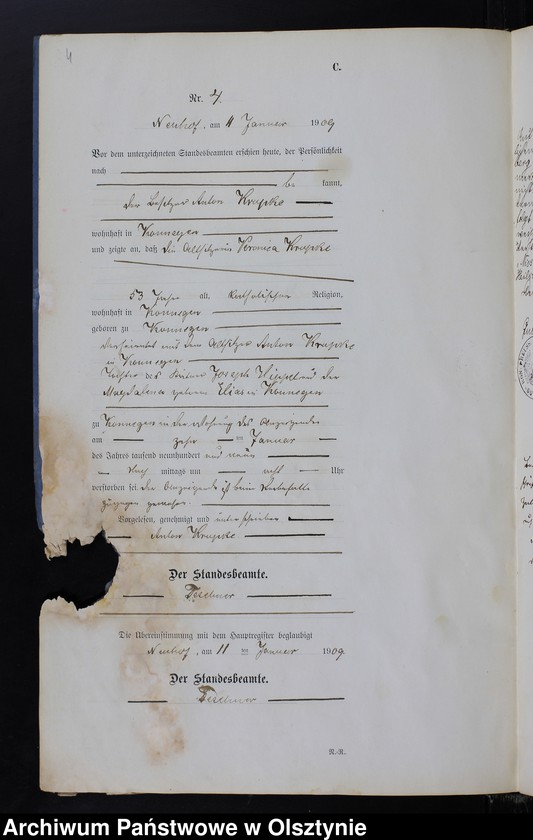 4
C.
Nr. 4.
Neuhof, am 11 Januar 1909
Vor dem unterzeichneten Standesbeamten erschien heute, der Persönlichkeit
nach
be kannt,
der Besitzer Anton
wohnhaft in
und zeigte an, daß die Altsitzerin Veronica
53 Jahre alt, katholischer Religion,
wohnhaft in
geboren zu
verheiratet mit dem Altsitzer Anton
in
Tochter des Joseph und der
Magdalena geborene in
zu in der Wohnung des Anzeigenden
am zehn ten Januar
des Jahres tausend neunhundert und neun
Nach mittags um acht Uhr
verstorben sei. Der Anzeigende ist beim Sterbefalle
zugegen gewesen.
Vorgelesen, genehmigt und unterschrieben
Anton
Der Standesbeamte.
Teschner
Die Übereinstimmung mit dem Hauptregister beglaubigt
Neuhof, am 11 ten Januar 1909
Der Standesbeamte.
Teschner
N.-R.
Archiwum Państwowe w Olsztynie